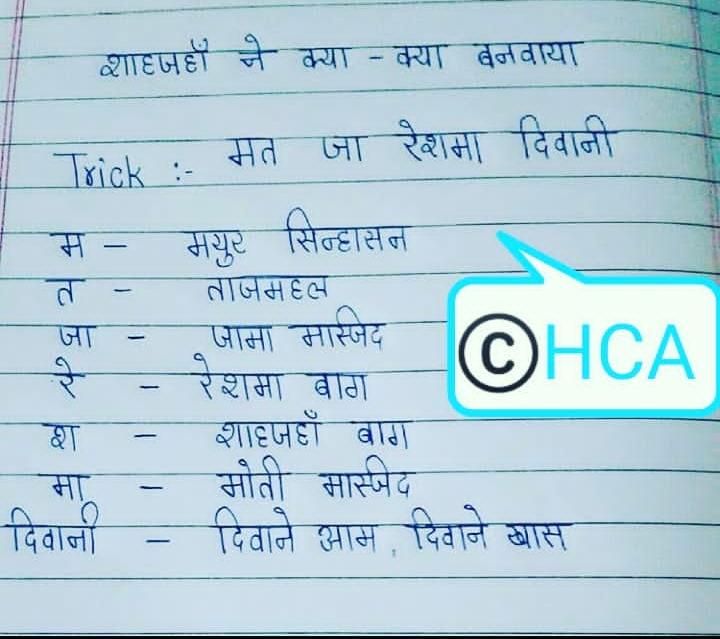 शाहजहाँ ने क्या - क्या बनवाया
Trick :- मत जा रेशमा दिवानी
म - मयुर सिन्हासन
त - ताजमहल
जा - जामा मास्जिद
रे - रेशमा बाग
श - शाहजहाँ बाग
मा - मोती मास्जिद
दिवानी - दिवाने आम, दिवाने खास
©HCA